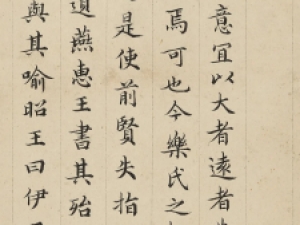 意宜以大者遠者先
焉可也今樂氏之
是使前賢失指
遺燕惠王書其殆
與其喻昭王曰伊